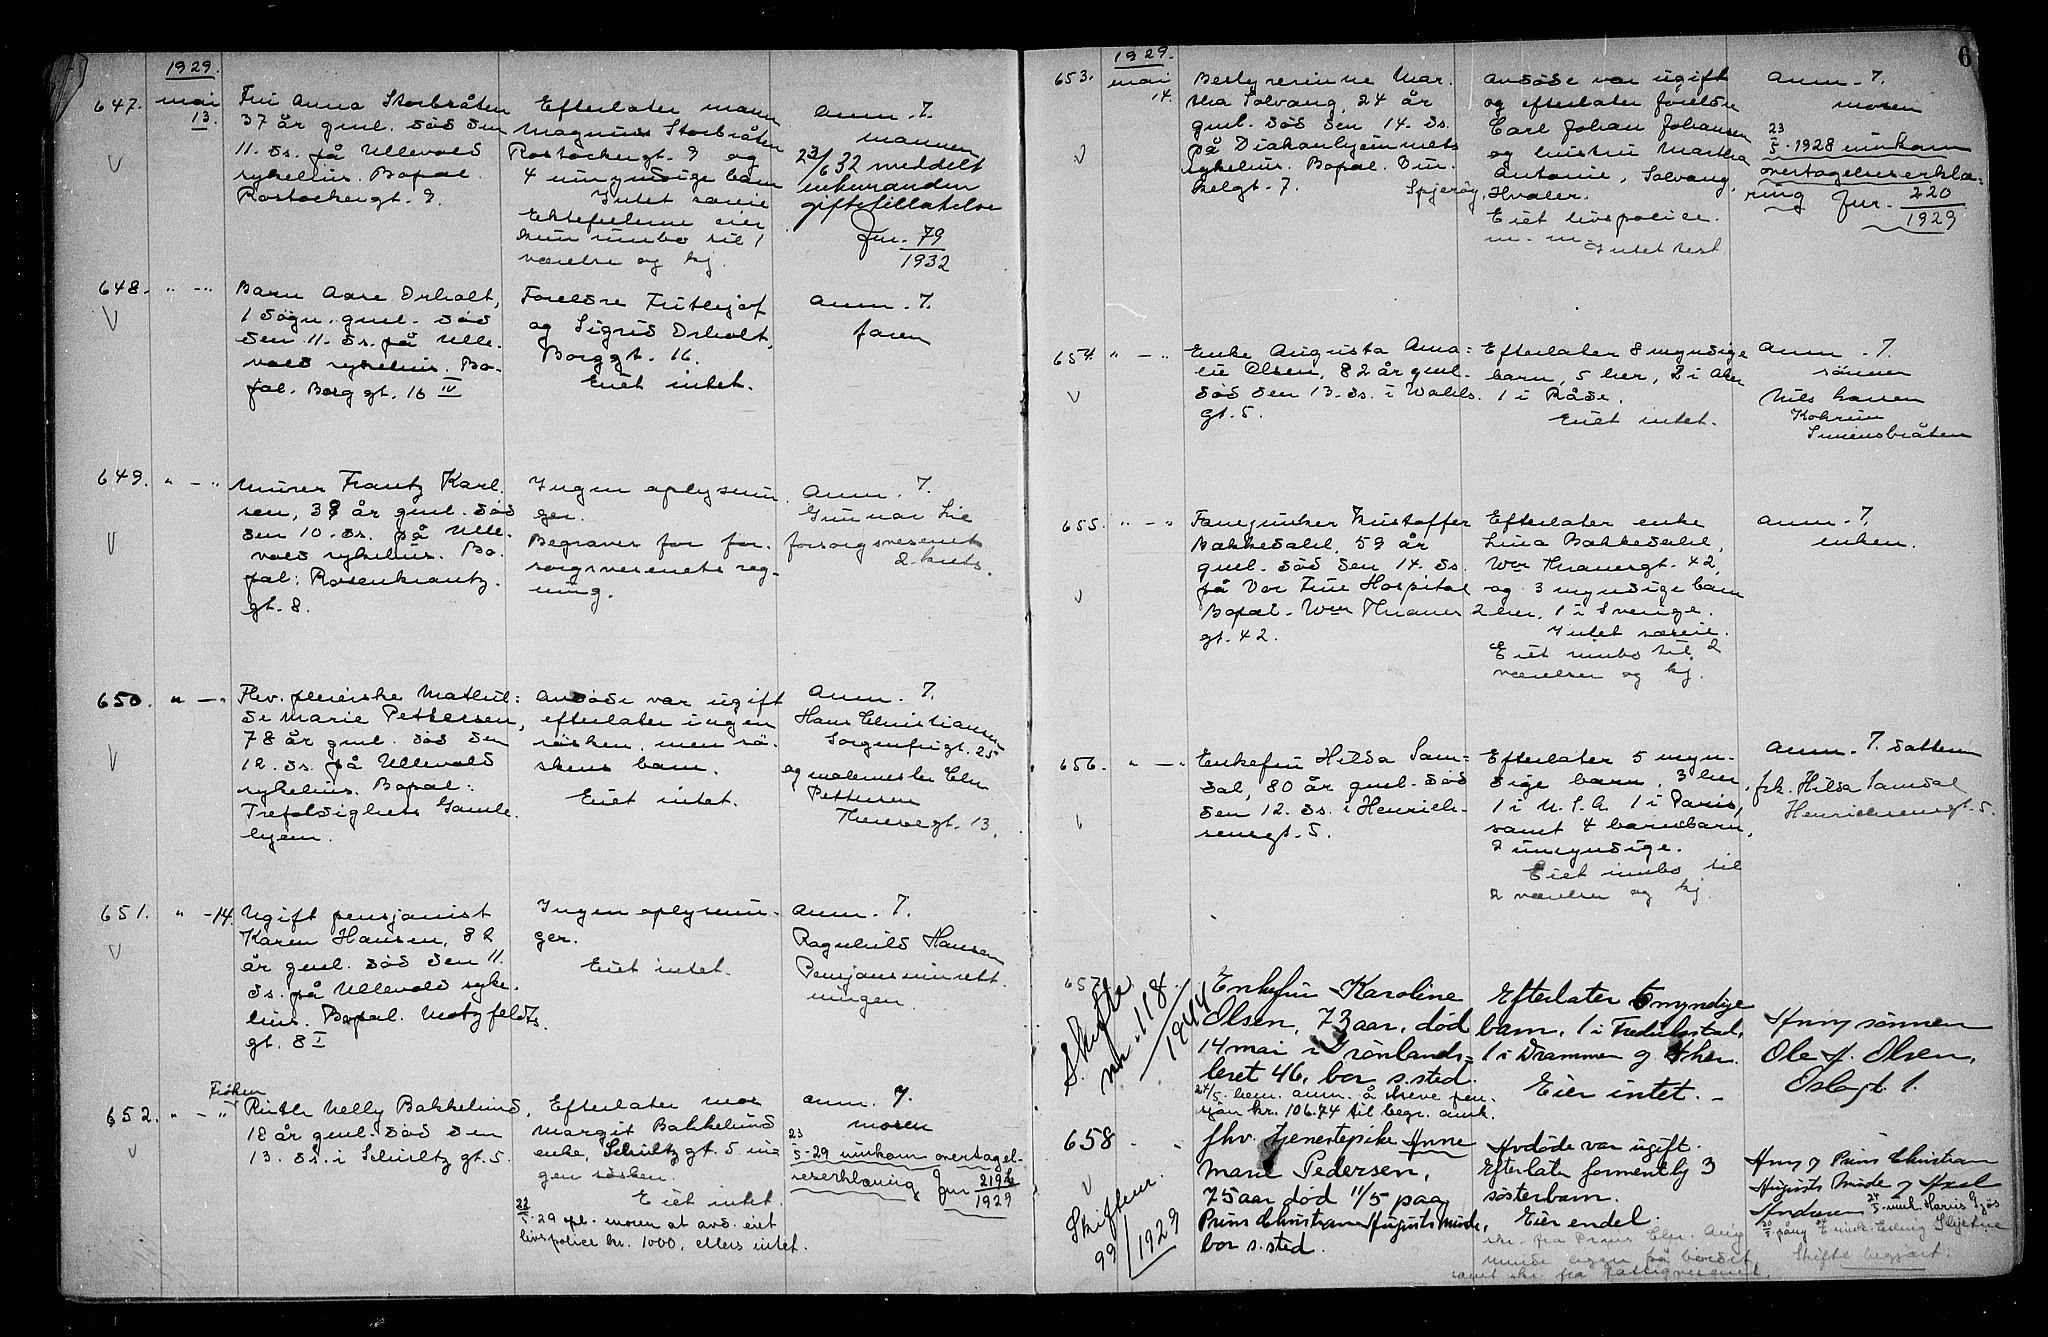 1929.
647. mai 13.
Fru Anna Storbråten
37 år gml. död den
11. ds. på Ullevold
sykehus. Bopæl.
Rostockergt. 9.
Efterlater mann
Magnus Storbråten
Rostockergt. 9 og
4 umyndige barn
Intet særeie
Ektefellene eier
kun innbo til 1
værelse og kj.
Anm. 7.
mannen
23/6 32 meddelt
enkemanden
giftetillatelse
Jnr. 79
1932
648. " - "
Barn Aase Orholt,
1 døgn. gml. död
den 11. ds. på Ulle-
vold sykehus. Bo-
pæl. Borg gt. 16 IV
Foreldre Fritthjof
og Sigrid Orholt,
Borggt. 16.
Eiet intet.
Anm. 7.
faren
649. " - "
Murer Frantz Karl-
sen, 39 år gml. död
den 10. ds. på Ulle-
vold sykehus. Bo-
pæl: Rosenkrantz-
gt. 8.
Ingen oplysnin-
ger.
Begraves for for-
sorgsvesenets reg-
ning.
Anm. 7.
Gunnar Lie
forsorgsvesenet
2. knts.
650. " - "
Fhv. pleierske Mathil-
de Marie Pettersen,
78 år gml. död den
12. ds. på Ullevold
sykehus. Bopæl:
Trefoldighets Gamle-
hjem.
Avdöde var ugift
efterlater ingen
søsken, men sø-
skens barn.
Eiet intet.
Anm. 7.
Hans Christiansen
Sorgenfrigt. 25
og malermester Chr.
Pettersen
Theresegt. 13.
651. " - 14.
Ugift pensjonist
Karen Hansen, 82
år gml. död den 11.
ds. på Ullevold syke-
hus. Bopæl. Motzfeldts-
gt. 8 I
Ingen oplysnin-
ger.
Eiet intet.
Anm. 7.
Ragnhild Hansen
Pensjonsinnrett-
ningen
652. " - "
Frøken
Ruth Nelly Bakkelund,
18 år gml. död den
13. ds. i Schultz gt. 5.
Efterlater mor
Margit Bakkelund
enke, Schultz gt. 5 in-
gen søsken.
Eiet intet.
22/5-29 opl. moren at avd. eiet
livspolice kr. 1000, ellers intet.
Anm. 7.
moren
23/5-29 innkom overtagel-
seserklæring Jnr 219
1929
1929.
6
653. mai 14.
Bestyrerinne Mar-
tha Solvang, 24 år
gml. död den 14. ds.
på Diakonhjemmets
sykehus. Bopæl. Dun-
kelgt. 7.
Avdöde var ugift
og efterlater foreldre
Carl Johan Johansen
og hustru Martha
Antonie, Solvang,
Spjerøy, Hvaler.
Eiet livspolice.
m. m. Intet test.
Anm. 7.
moren
23/5-1928 innkom
overtagelseserklæ-
ring Jnr. 220
1929
654 " - "
Enke Augusta Ama-
lie Olsen, 82 år gml.
död den 13. ds. i Wahls
gt. 5.
Efterlater 8 myndige
barn, 5 her, 2 i Aker
1 i Råde.
Eiet intet.
Anm. 7.
sønnen
Nils Larsen
Simensbråten
655. " - "
Fanejunker Kristoffer
Bakkedahl, 59 år
gml. död den 14. ds.
på Vor Frue Hospital
Bopæl. Wm Thranes
gt. 42.
Efterlater enke
Lina Bakkedahl,
Wm Thranesgt. 42,
og 3 myndige barn
2 her, 1 i Sverige.
Intet særeie.
Eiet innbo til 2
værelser og kj.
Anm. 7.
enken.
656. " - "
Enkefru Hilda Sam-
dal, 80 år gml. död
den 12. ds. i Henrich-
sensgt. 5.
Efterlater 5 myn-
dige barn, 3 her,
1 i U.S.A. 1 i Paris,
samt 4 barnebarn,
2 umyndige.
Eiet innbo til
2 værelser og kj.
Anm. 7. datteren
frk. Hilda Samdal
Henrichsensgt. 5.
657
Skifte
nr. 118
1944
Enkefru Karoline
Olsen, 73 aar, död
14 mai i Grönlands-
leret 46, bor s.sted.
24/5. bem. anm. å heve pen-
sjon kr. 106.74 til begr. omk.
Efterlater 6 myndige
barn, 1 i Fredrikstad,
1 i Drammen og 4 her.
Eier intet. -
Anm sønnen
Ole A. Olsen,
Oslogt 1.
658 - -
Skiftenr.
99/1929
fhv. tjenestepike Anne
Marie Pedersen,
75 aar död 11/5 paa
Prins Christian Augusts Minde,
bor s. sted.
Avdöde var ugift.
Efterlater formentlig 3
søsterbarn.
Eier endel.
skr. fra Prins Chr. Aug.
minde
samt skr. fra Fattigvesenet.
Anm og Prins Christian
Augusts Minde og Axel
Andersen
Skifte begjært.